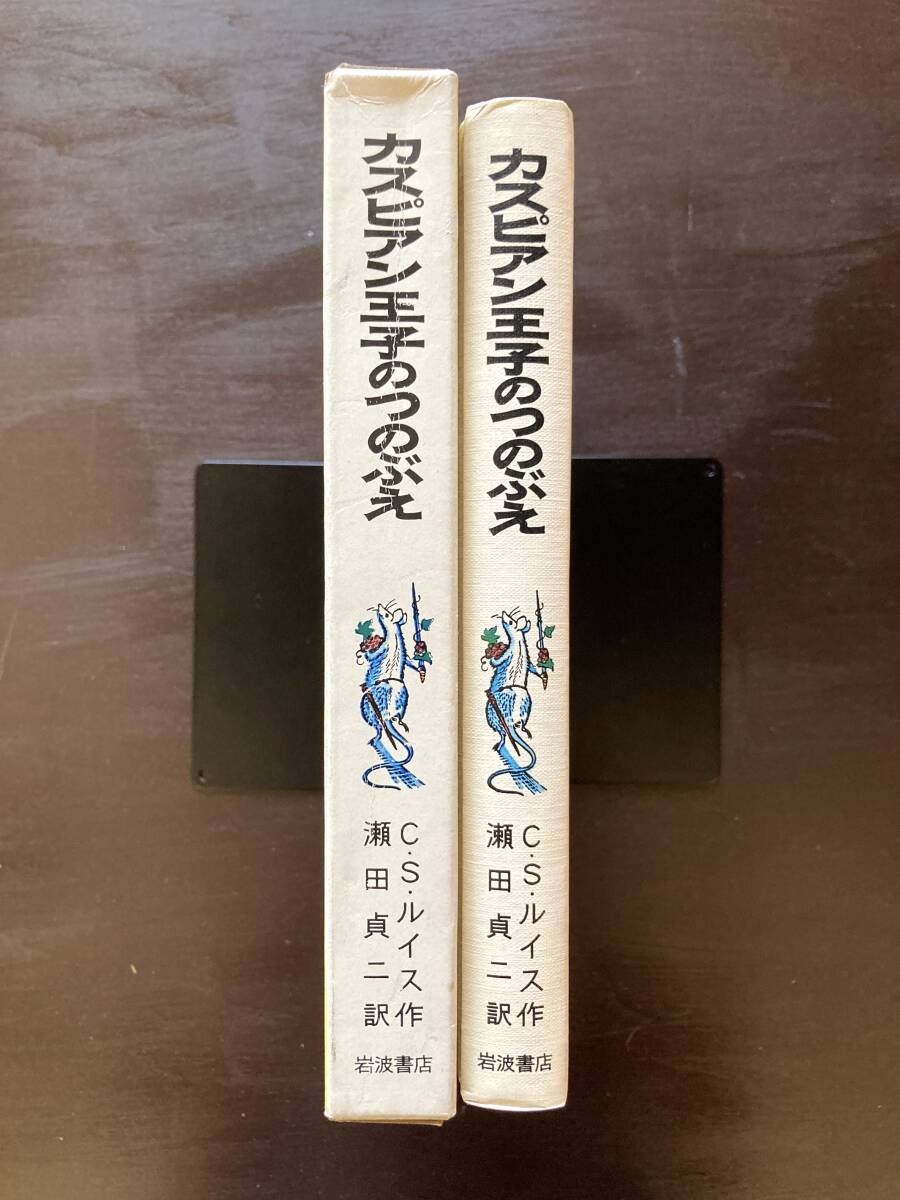 カスピアン王子のつのぶえ
C・S・ルイス作
瀬田貞二訳
岩波書店
カスピアン王子のつのぶえ
C・S・ルイス作
瀬田貞二訳
岩波書店